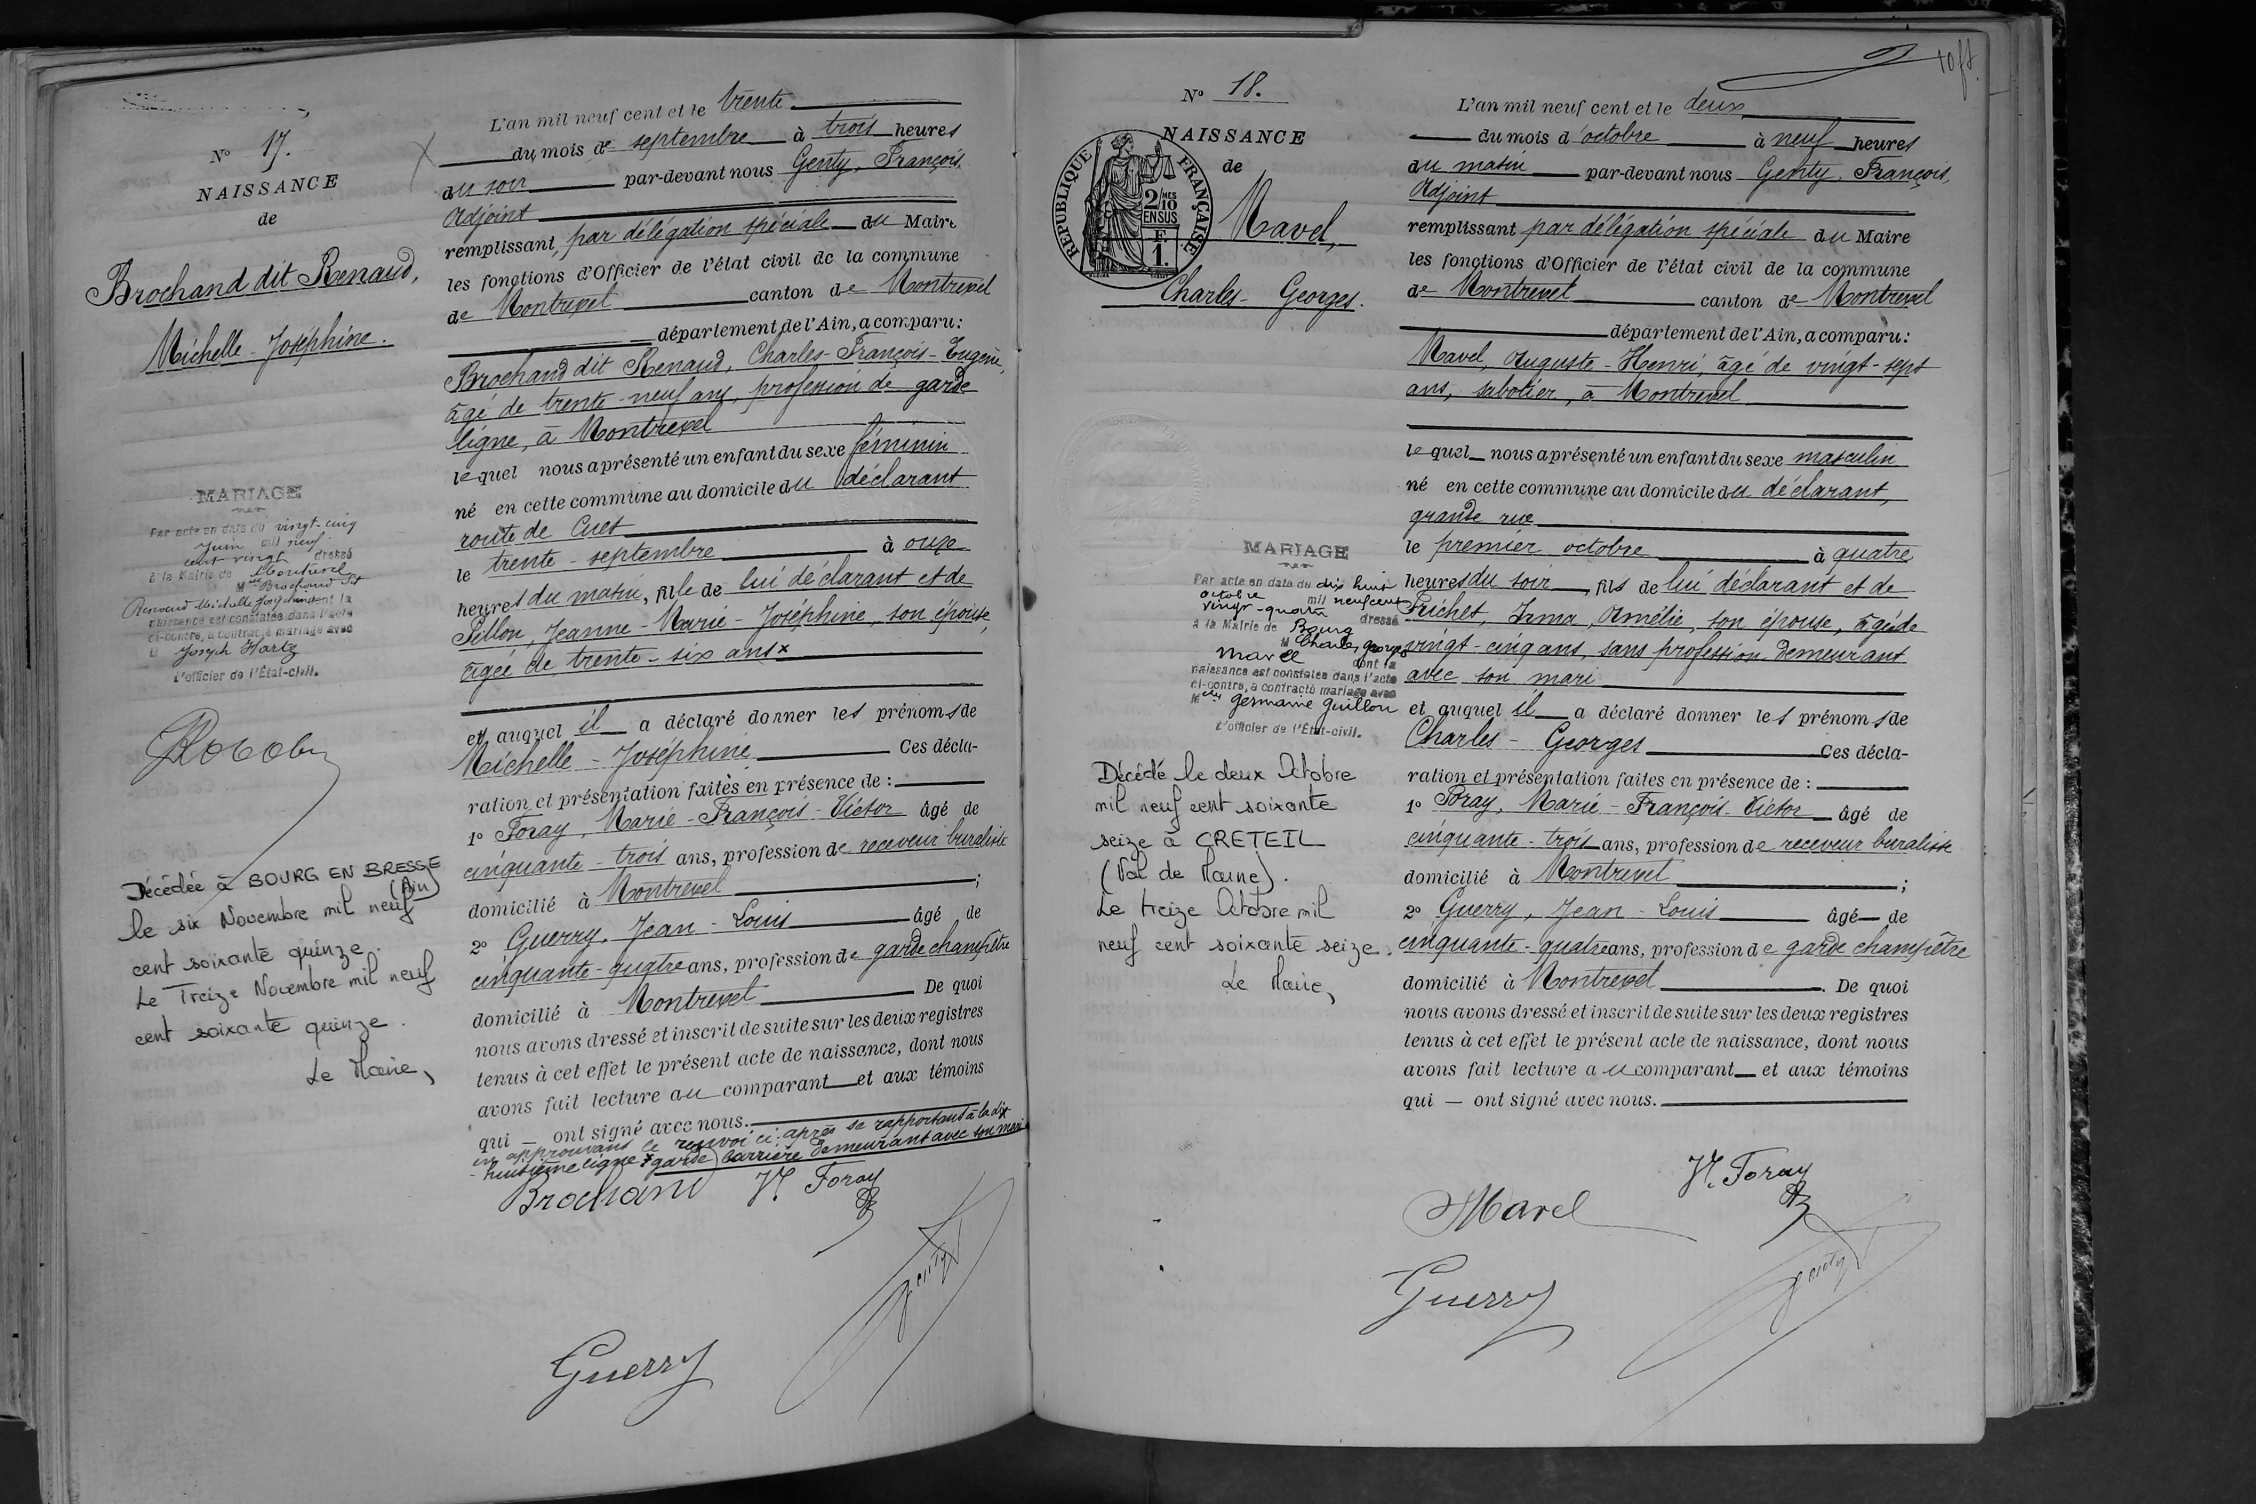 N° 17.
NAISSANCE
de
Brochand dit Renaud,
Michelle-Joséphine.
MARIAGE
Par acte en date du vingt-cinq
Juin mil neuf
cent vingt dressé
à la Mairie de Montrevel
Mlle Brochand dit
Renaud Michelle Joséphine dont la
naissance est constatée dans l'acte
ci-contre, a contracté mariage avec
M Joseph Hartz
L'officier de l'État-civil.
Décédée à BOURG EN BRESSE
(Ain)
le six Novembre mil neuf
cent soixante quinze.
Le Treize Novembre mil neuf
cent soixante quinze.
Le Maire,
L'an mil neuf cent et le trente
du mois de septembre à trois heures
du soir par-devant nous Genty, François,
Adjoint
remplissant, par délégation spéciale du Maire
les fonctions d'Officier de l'état civil de la commune
de Montrevel canton de Montrevel
département de l'Ain, a comparu:
Brochand dit Renaud, Charles-François-Eugène,
âgé de trente-neuf ans, profession de garde
ligne, à Montrevel
lequel nous a présenté un enfant du sexe féminin
né en cette commune au domicile du déclarant
route de Cuet
le trente-septembre à onze
heures du matin, fille de lui déclarant et de
Pillon, Jeanne-Marie-Joséphine, son épouse,
âgée de trente-six ans x
et auquel il a déclaré donner les prénoms de
Michelle-Joséphine Ces décla-
ration et présentation faites en présence de :
1° Foray, Marie-François-Victor âgé de
cinquante-trois ans, profession de receveur buraliste
domicilié à Montrevel ;
2° Guerry, Jean-Louis âgé de
cinquante-quatre ans, profession de garde champêtre
domicilié à Montrevel De quoi
nous avons dressé et inscrit de suite sur les deux registres
tenus à cet effet le présent acte de naissance, dont nous
avons fait lecture au comparant et aux témoins
qui — ont signé avec nous.
en approuvant le renvoi ci-après se rapportant à la dix
-huitième ligne x garde barrière demeurant avec son mari
Brochand V. Foray
Genty
Guerry
N° 18.
NAISSANCE
de
RÉPUBLIQUE FRANÇAISE
2/10MES
EN SUS
F.
1.
Mavel,
Charles-Georges.
MARIAGE
Par acte en date du dix huit
octobre mil neuf cent
vingt-quatre dressé
à la Mairie de Bourg
M Charles georges
Mavel dont la
naissance est constatée dans l'acte
ci-contre, a contracté mariage avec
Melle Germaine Guillon
L'officier de l'État-civil.
Décédé le deux Octobre
mil neuf cent soixante
seize à CRETEIL
(Val de Marne).
Le treize Octobre mil
neuf cent soixante seize.
Le Maire,
L'an mil neuf cent et le deux
du mois d'octobre à neuf heures
du matin par-devant nous Genty, François,
Adjoint
remplissant par délégation spéciale du Maire
les fonctions d'Officier de l'état civil de la commune
de Montrevel canton de Montrevel
département de l'Ain, a comparu:
Mavel, Auguste-Henri, âgé de vingt-sept
ans, sabotier, à Montrevel
lequel nous a présenté un enfant du sexe masculin
né en cette commune au domicile du déclarant,
grande rue
le premier octobre à quatre
heures du soir, fils de lui déclarant et de
Prichet, Irma, Amélie, son épouse, âgée de
vingt-cinq ans, sans profession demeurant
avec son mari
et auquel il a déclaré donner les prénoms de
Charles-Georges Ces décla-
ration et présentation faites en présence de :
1° Foray, Marie-François-Victor âgé de
cinquante-trois ans, profession de receveur buraliste
domicilié à Montrevel ;
2° Guerry, Jean-Louis âgé de
cinquante-quatre ans, profession de garde champêtre
domicilié à Montrevel. De quoi
nous avons dressé et inscrit de suite sur les deux registres
tenus à cet effet le présent acte de naissance, dont nous
avons fait lecture au comparant et aux témoins
qui — ont signé avec nous.
V. Foray
Mavel
Genty
Guerry